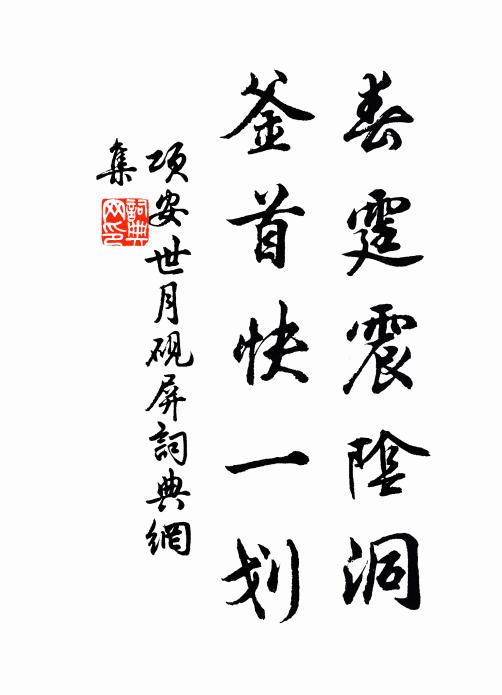 春霆震陰洞
釜首快一划
項安世月硯屏詞典網
集
詞典
网印